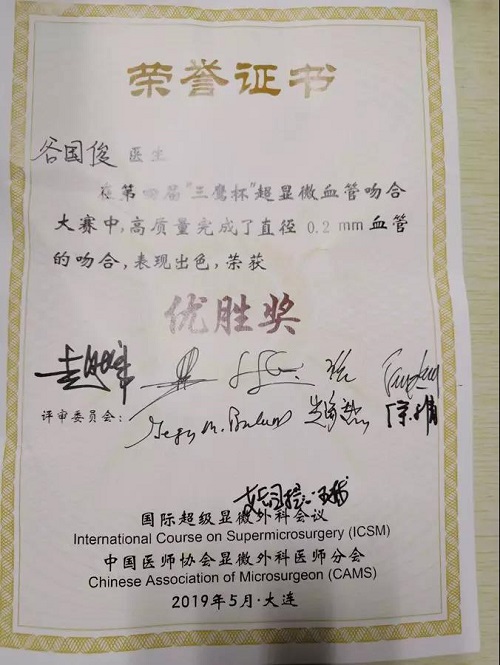 荣誉证书
谷国俊 医生
在第四届"三鹰杯"超显微血管吻合
大赛中，高质量完成了直径 0.2 mm 血管
的吻合，表现出色，荣获
优胜奖
评审委员会：
国际超级显微外科会议
International Course on Supermicrosurgery (ICSM)
中国医师协会显微外科医师分会
Chinese Association of Microsurgeon (CAMS)
2019年5月·大连